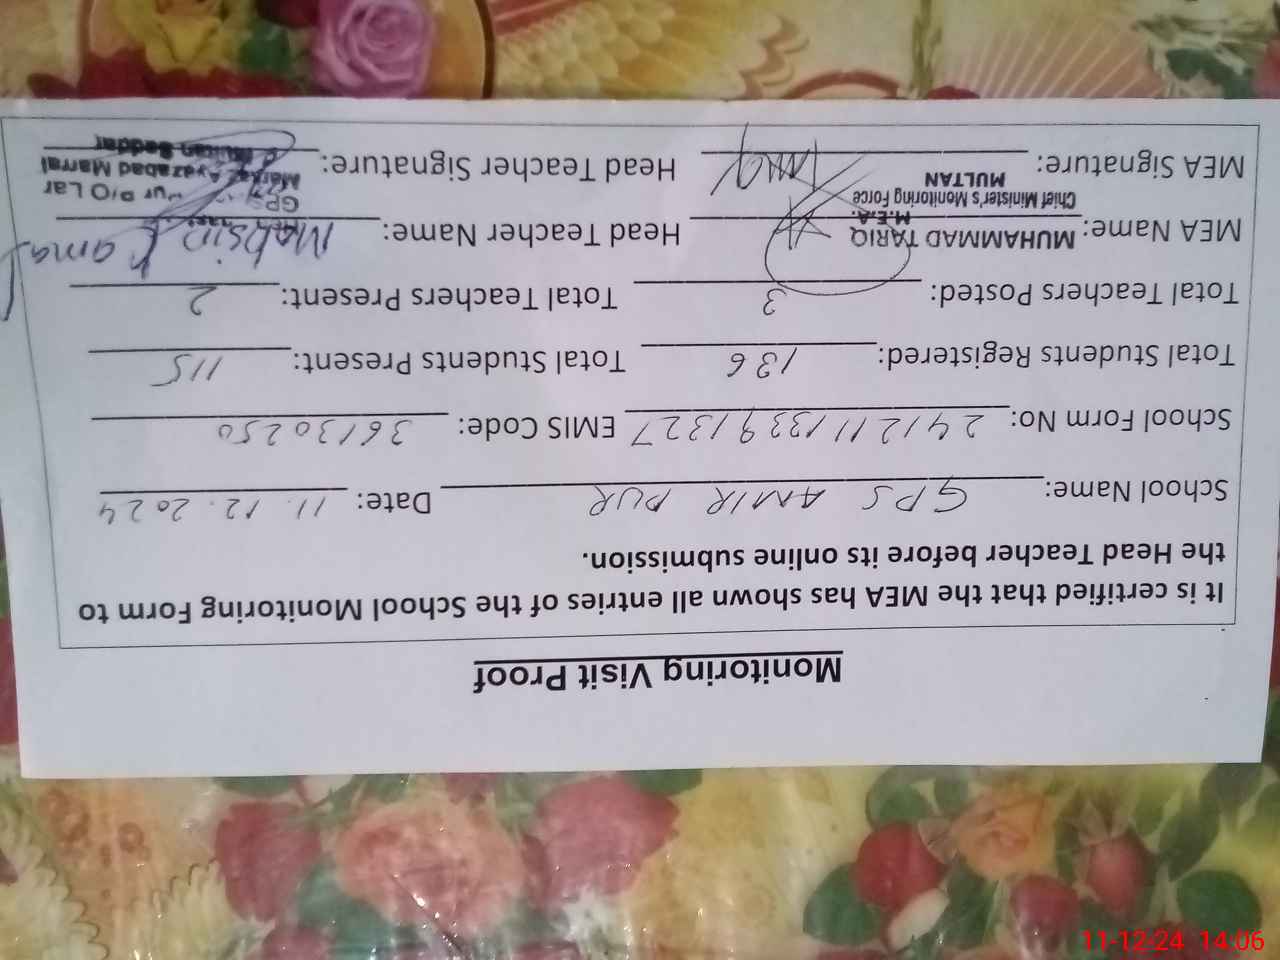 Monitoring Visit Proof
It is certified that the MEA has shown all entries of the School Monitoring Form to
the Head Teacher before its online submission.
School Name: GPS AMIR PUR Date: 11.12.2024
School Form No: 24121113391327 EMIS Code: 36130250
Total Students Registered: 136 Total Students Present: 115
Total Teachers Posted: 3 Total Teachers Present: 2
MEA Name: MUHAMMAD TARIQ Head Teacher Name: Mohsin Kamal
M.E.A.
Chief Minister's Monitoring Force
MULTAN
GPS pur P/O Lar
Markaz Ayazabad Marral
Multan Saddar
MEA Signature: Head Teacher Signature:
11-12-24 14:06